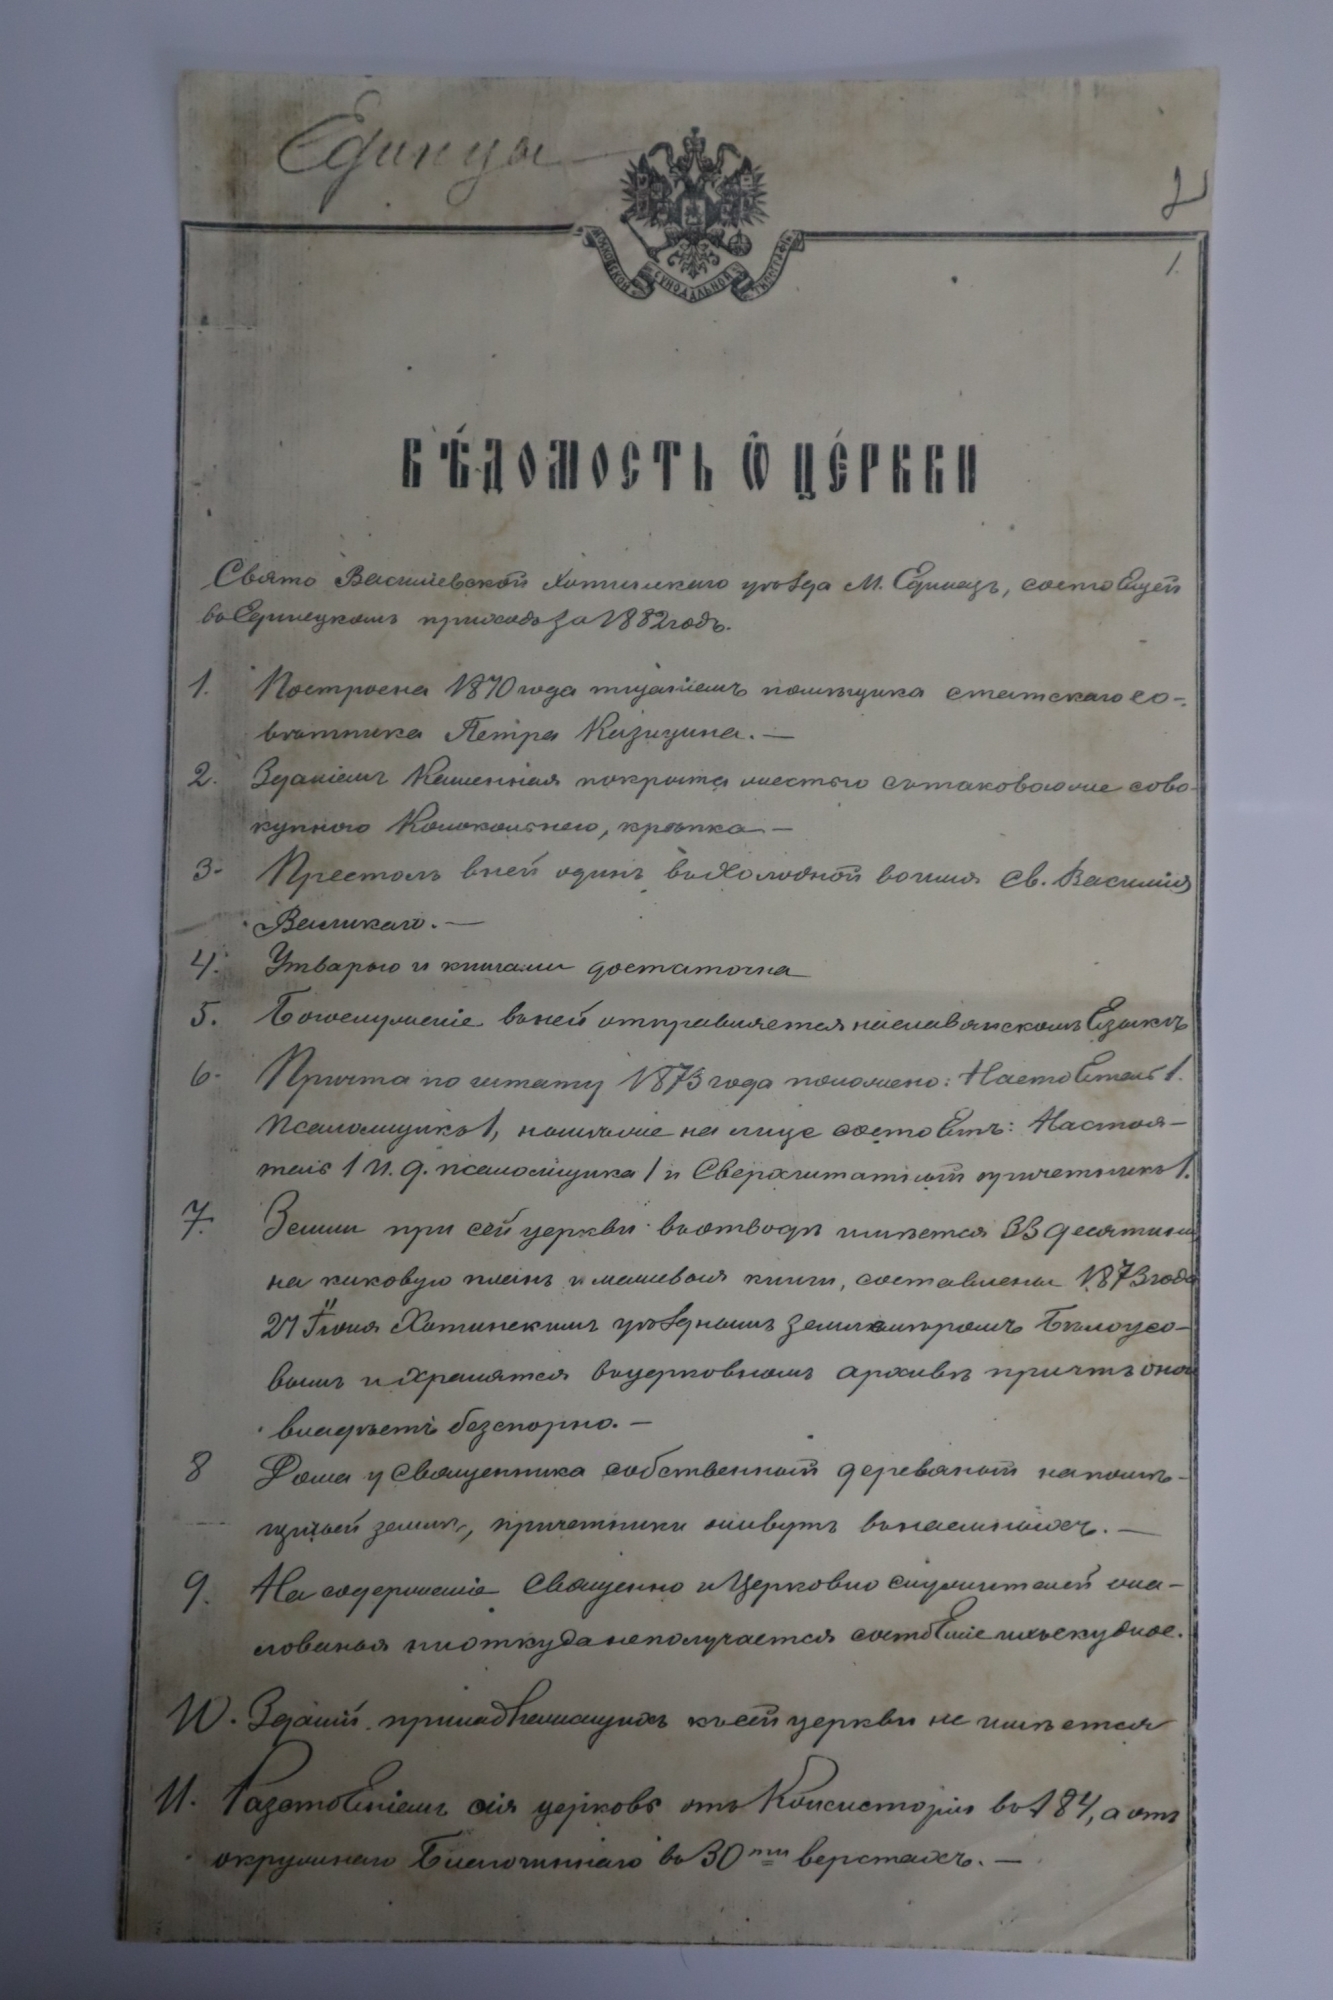 Единцы
2
МОСКОВСКОЙ СѴНОДАЛЬНОЙ ТИПОГРАФІИ
1.
ВѢ́ДОМОСТЬ Ѡ ЦЕ́РКВИ
Свято Василіевской Хотинскаго уѣзда М. Единцъ, состоящей
въ Единецкомъ приходѣ за 1882 годъ.
1. Построена 1870 года тщаніемъ помѣщика статскаго со-
вѣтника Петра Казимира. —
2. Зданіемъ Каменная покрыта жестью съ таковою же сово-
купною Колокольнею, крѣпка. —
3. Престолъ в ней одинъ въ холодной во имя Св. Василія
Великаго. —
4. Утварью и книгами достаточна
5. Богослуженіе въ ней отправляется на славянскомъ языкѣ
6. Причта по штату 1873 года положено: Настоятель 1.
Псаломщикъ 1, нынѣ же на лице состоитъ: Настоя-
тель 1 И. д. псаломщика 1 и Сверхштатный причетникъ 1.
7. Земли при сей церкви въ отводѣ имѣется 33 десятины
на каковую планъ и межевыя книги, составлены 1873 года
27 Іюня Хотинскимъ уѣзднымъ землемѣромъ Бѣлоусо-
вымъ и хранятся въ церковномъ архивѣ причтъ оною
владѣетъ безспорно. —
8 Дома у священника собственный деревяной на помѣ-
щичьей землѣ, причетники живутъ въ наемныхъ. —
9. На содержаніе Священно и Церковно служителей жа-
лованья ни откуда не получается состояніе ихъ скудное.
10. Зданій, принадлежащихъ къ сей церкви не имѣется
11. Разстояніемъ сія церковь отъ Консисторіи въ 184, а отъ
окружнаго Благочиннаго въ 30ти верстахъ. —